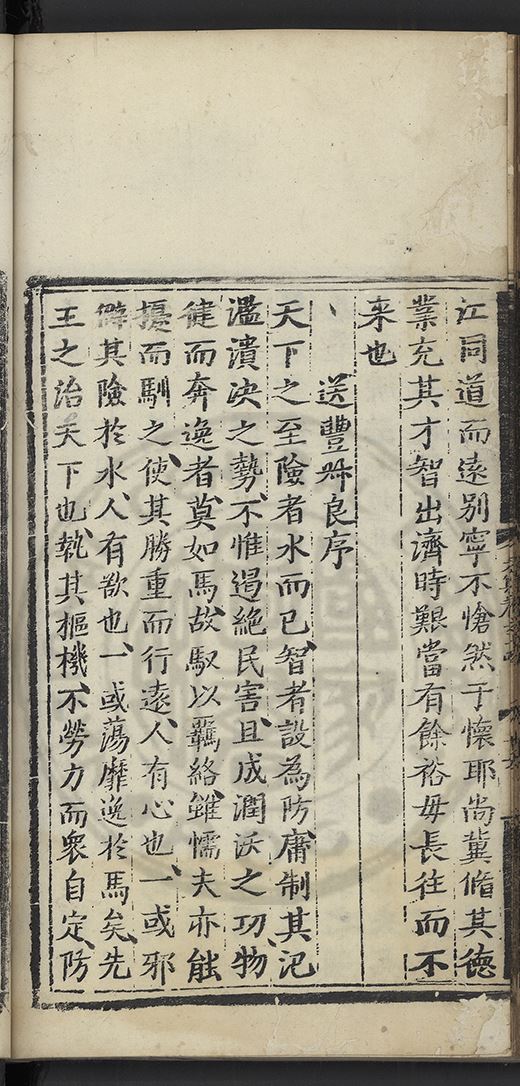 江同道而遠別寧不愴然于懷耶尚冀脩其德
業充其才智出濟時艱當有餘裕毋長往而不
来也
送豐叔良序
天下之至險者水而已智者設為防庸制其汜
濫潰决之勢不惟遏絶民害且成潤沃之功物
健而奔逸者莫如馬故馭以羈絡雖懦夫亦能
擾而馴之使其勝重而行遠人有心也一或邪
僻其險於水人有欲也一或蕩靡逸於馬矣先
王之治天下也執其樞機不勞力而衆自定防